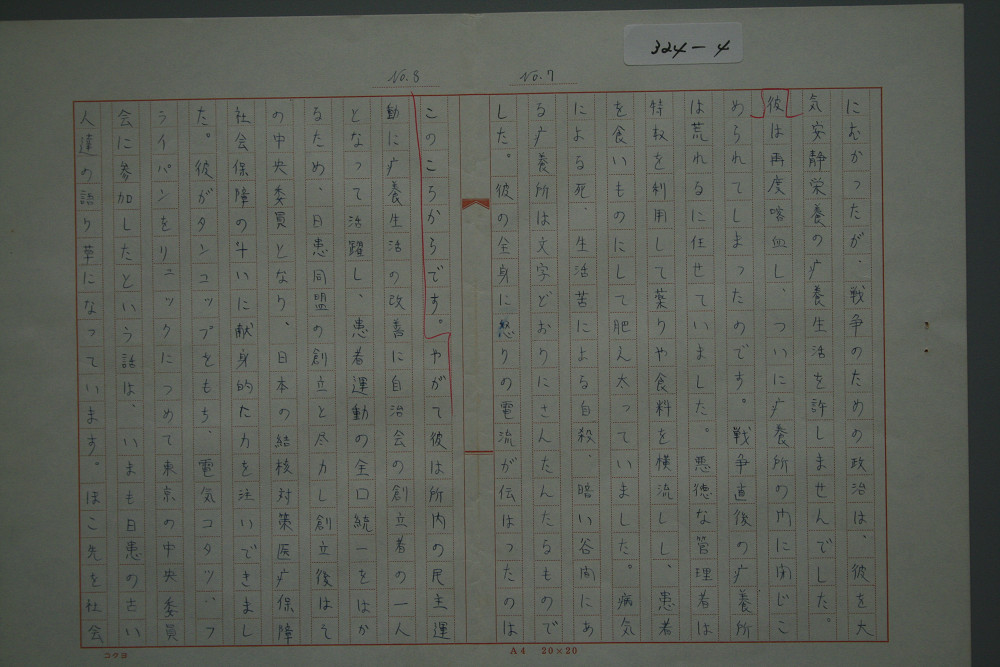 324-4
No.7
にむかったが、戦争のための政治は、彼を大
気安静栄養の疒養生活を許しませんでした。
彼は再度喀血し、ついに疒養所の内に閉じこ
められてしまったのです。戦争直後の疒養所
は荒れるに任せていました。悪徳な管理者は
特权を利用して薬りや食料を横流しし、患者
を食いものにして肥え太っていました。病気
による死、生活苦による自殺、暗い谷間にあ
る疒養所は文字どおりにさんたんたるもので
した。彼の全身に怒りの電流が伝はったのは
No.8
このころからです。やがて彼は所内の民主運
動に疒養生活の改善に自治会の創立者の一人
となって活躍し、患者運動の全口統一をはか
るため、日患同盟の創立と尽力し創立後はそ
の中央委員となり、日本の結核対策医疒保障
社会保障の斗いに献身的た力を注いできまし
た。彼がタンコップをもち、電気コタツ、フ
ライパンをリュックにつめて東京の中央委員
会に参加したという話は、いまも日患の古い
人達の語り草になっています。ほこ先を社会
コクヨ
A4 20×20